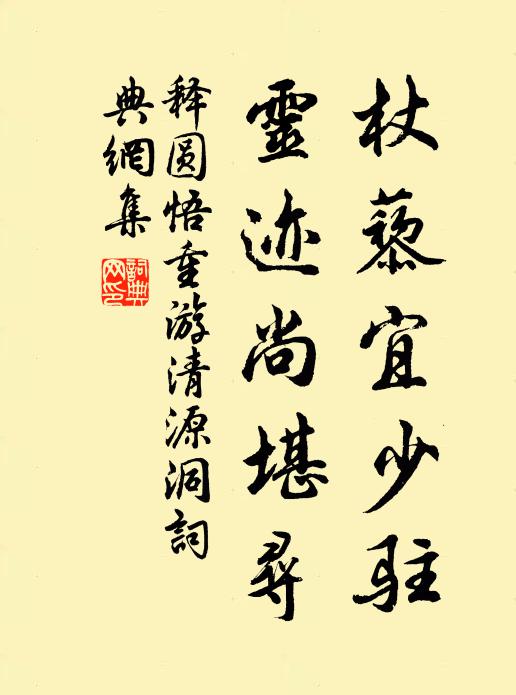 杖藜宜少驻
靈迹尚堪尋
释圆悟重游清源洞詞
典網集
詞典
网印